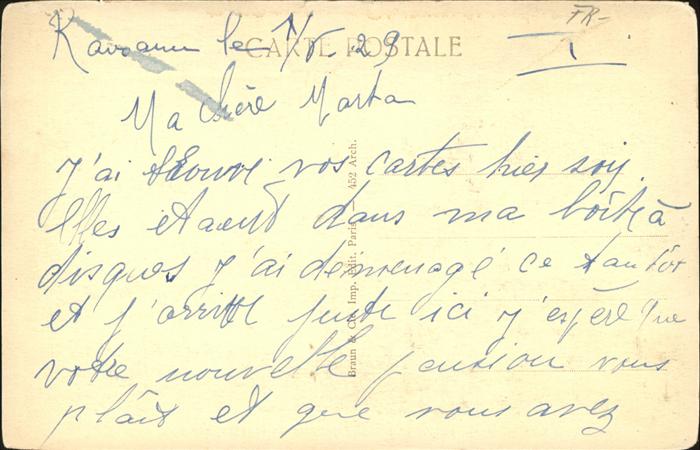 FR-
CARTE POSTALE
le 1/5. 29
I.
Ma chère Marta
J'ai trouvé vos cartes hier soir.
Elles étaient dans ma boîte à
disques J'ai demenagé ce tantôt
et j'arrive juste ici J'espère que
votre nouvelle pension vous
plaît et que vous avez
Braun & Cie Imp. Edit. Paris — 452 Arch.